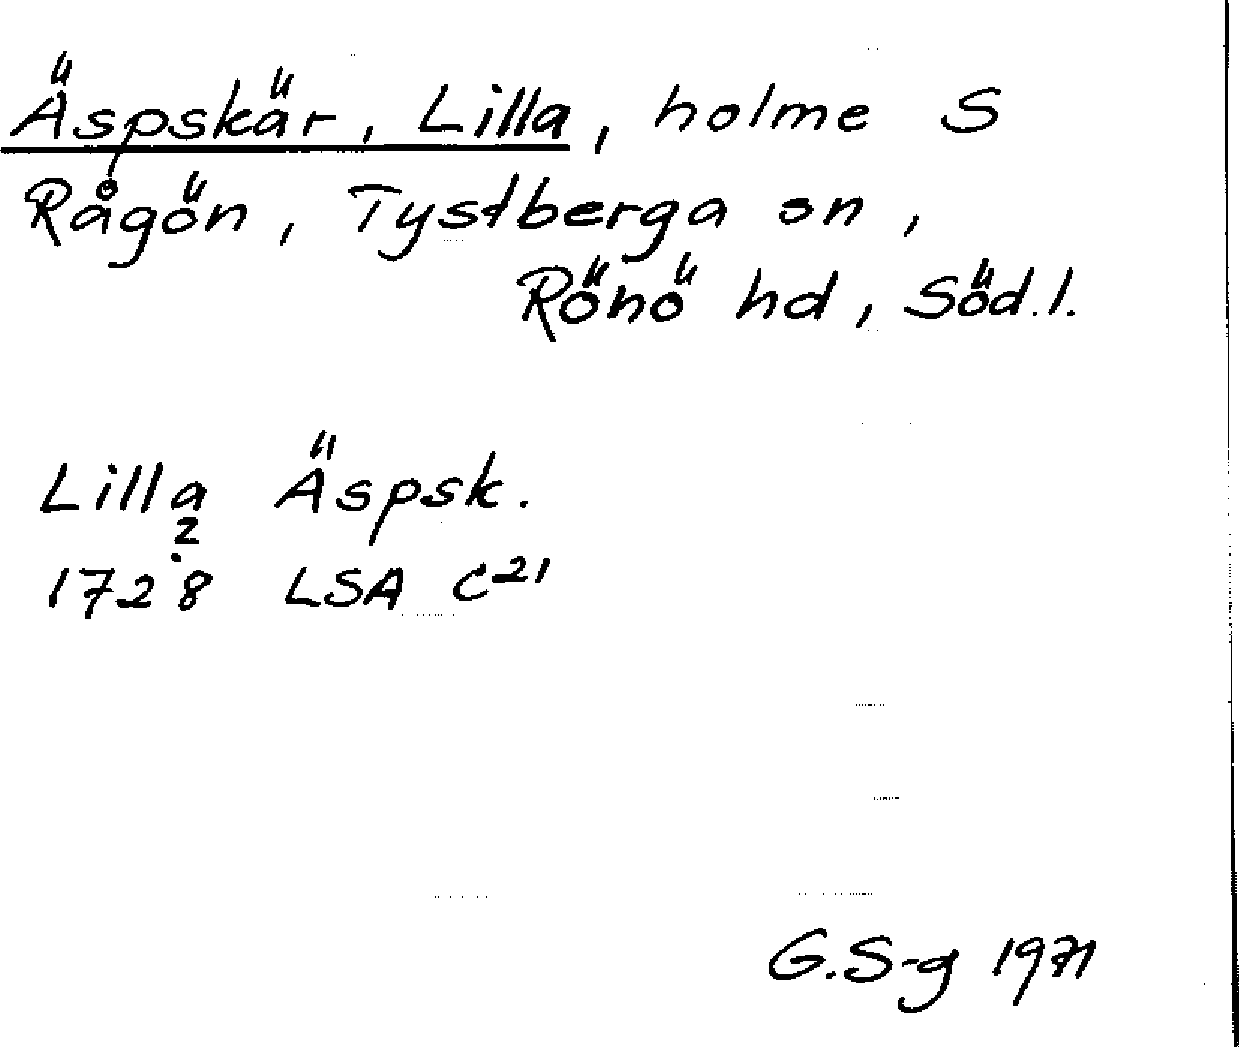 Äspskär, Lilla, holme S
Rågön, Tystberga sn,
Rönö hd, Söd.l.
Lilla Äspsk.
2
1728 LSA C21
G.S-g 1971